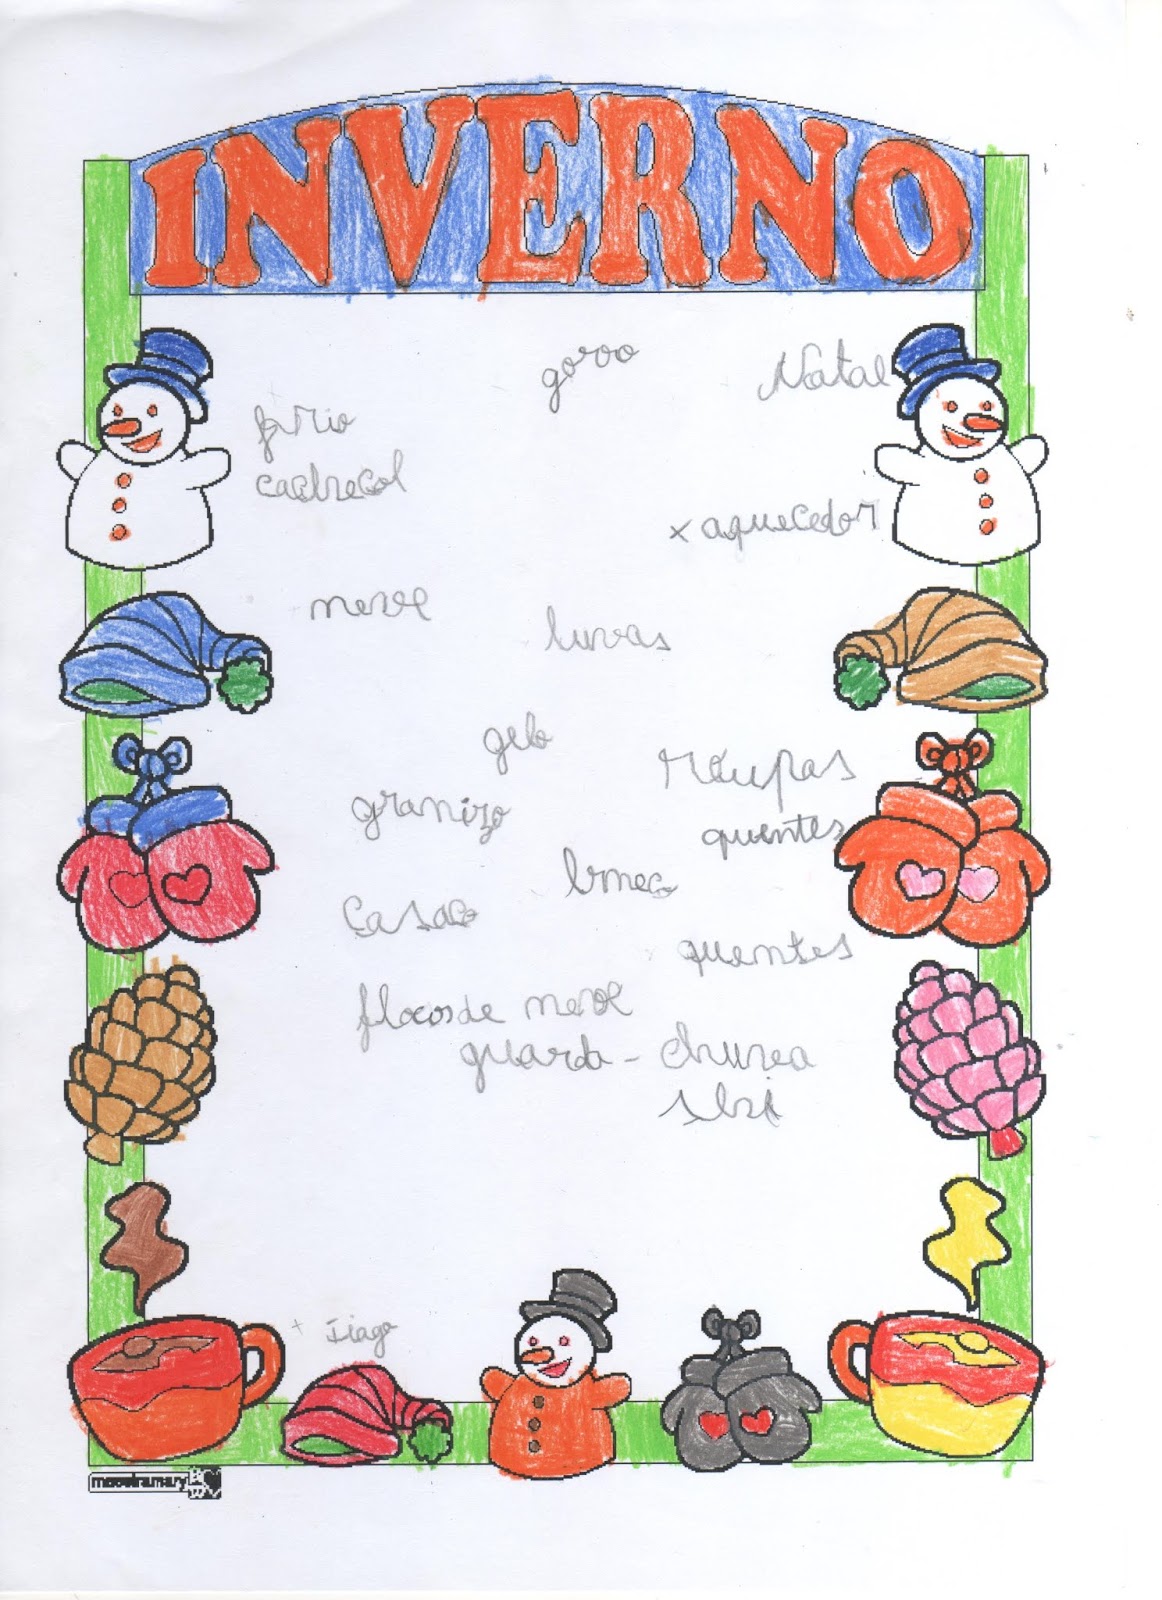 INVERNO
gorro
Natal
frio
cachecol
x aquecedor
neve
luvas
gelo
roupas
granizo
quentes
boneco
casaco
quentes
flocos de neve
guarda-chuva
Tiago